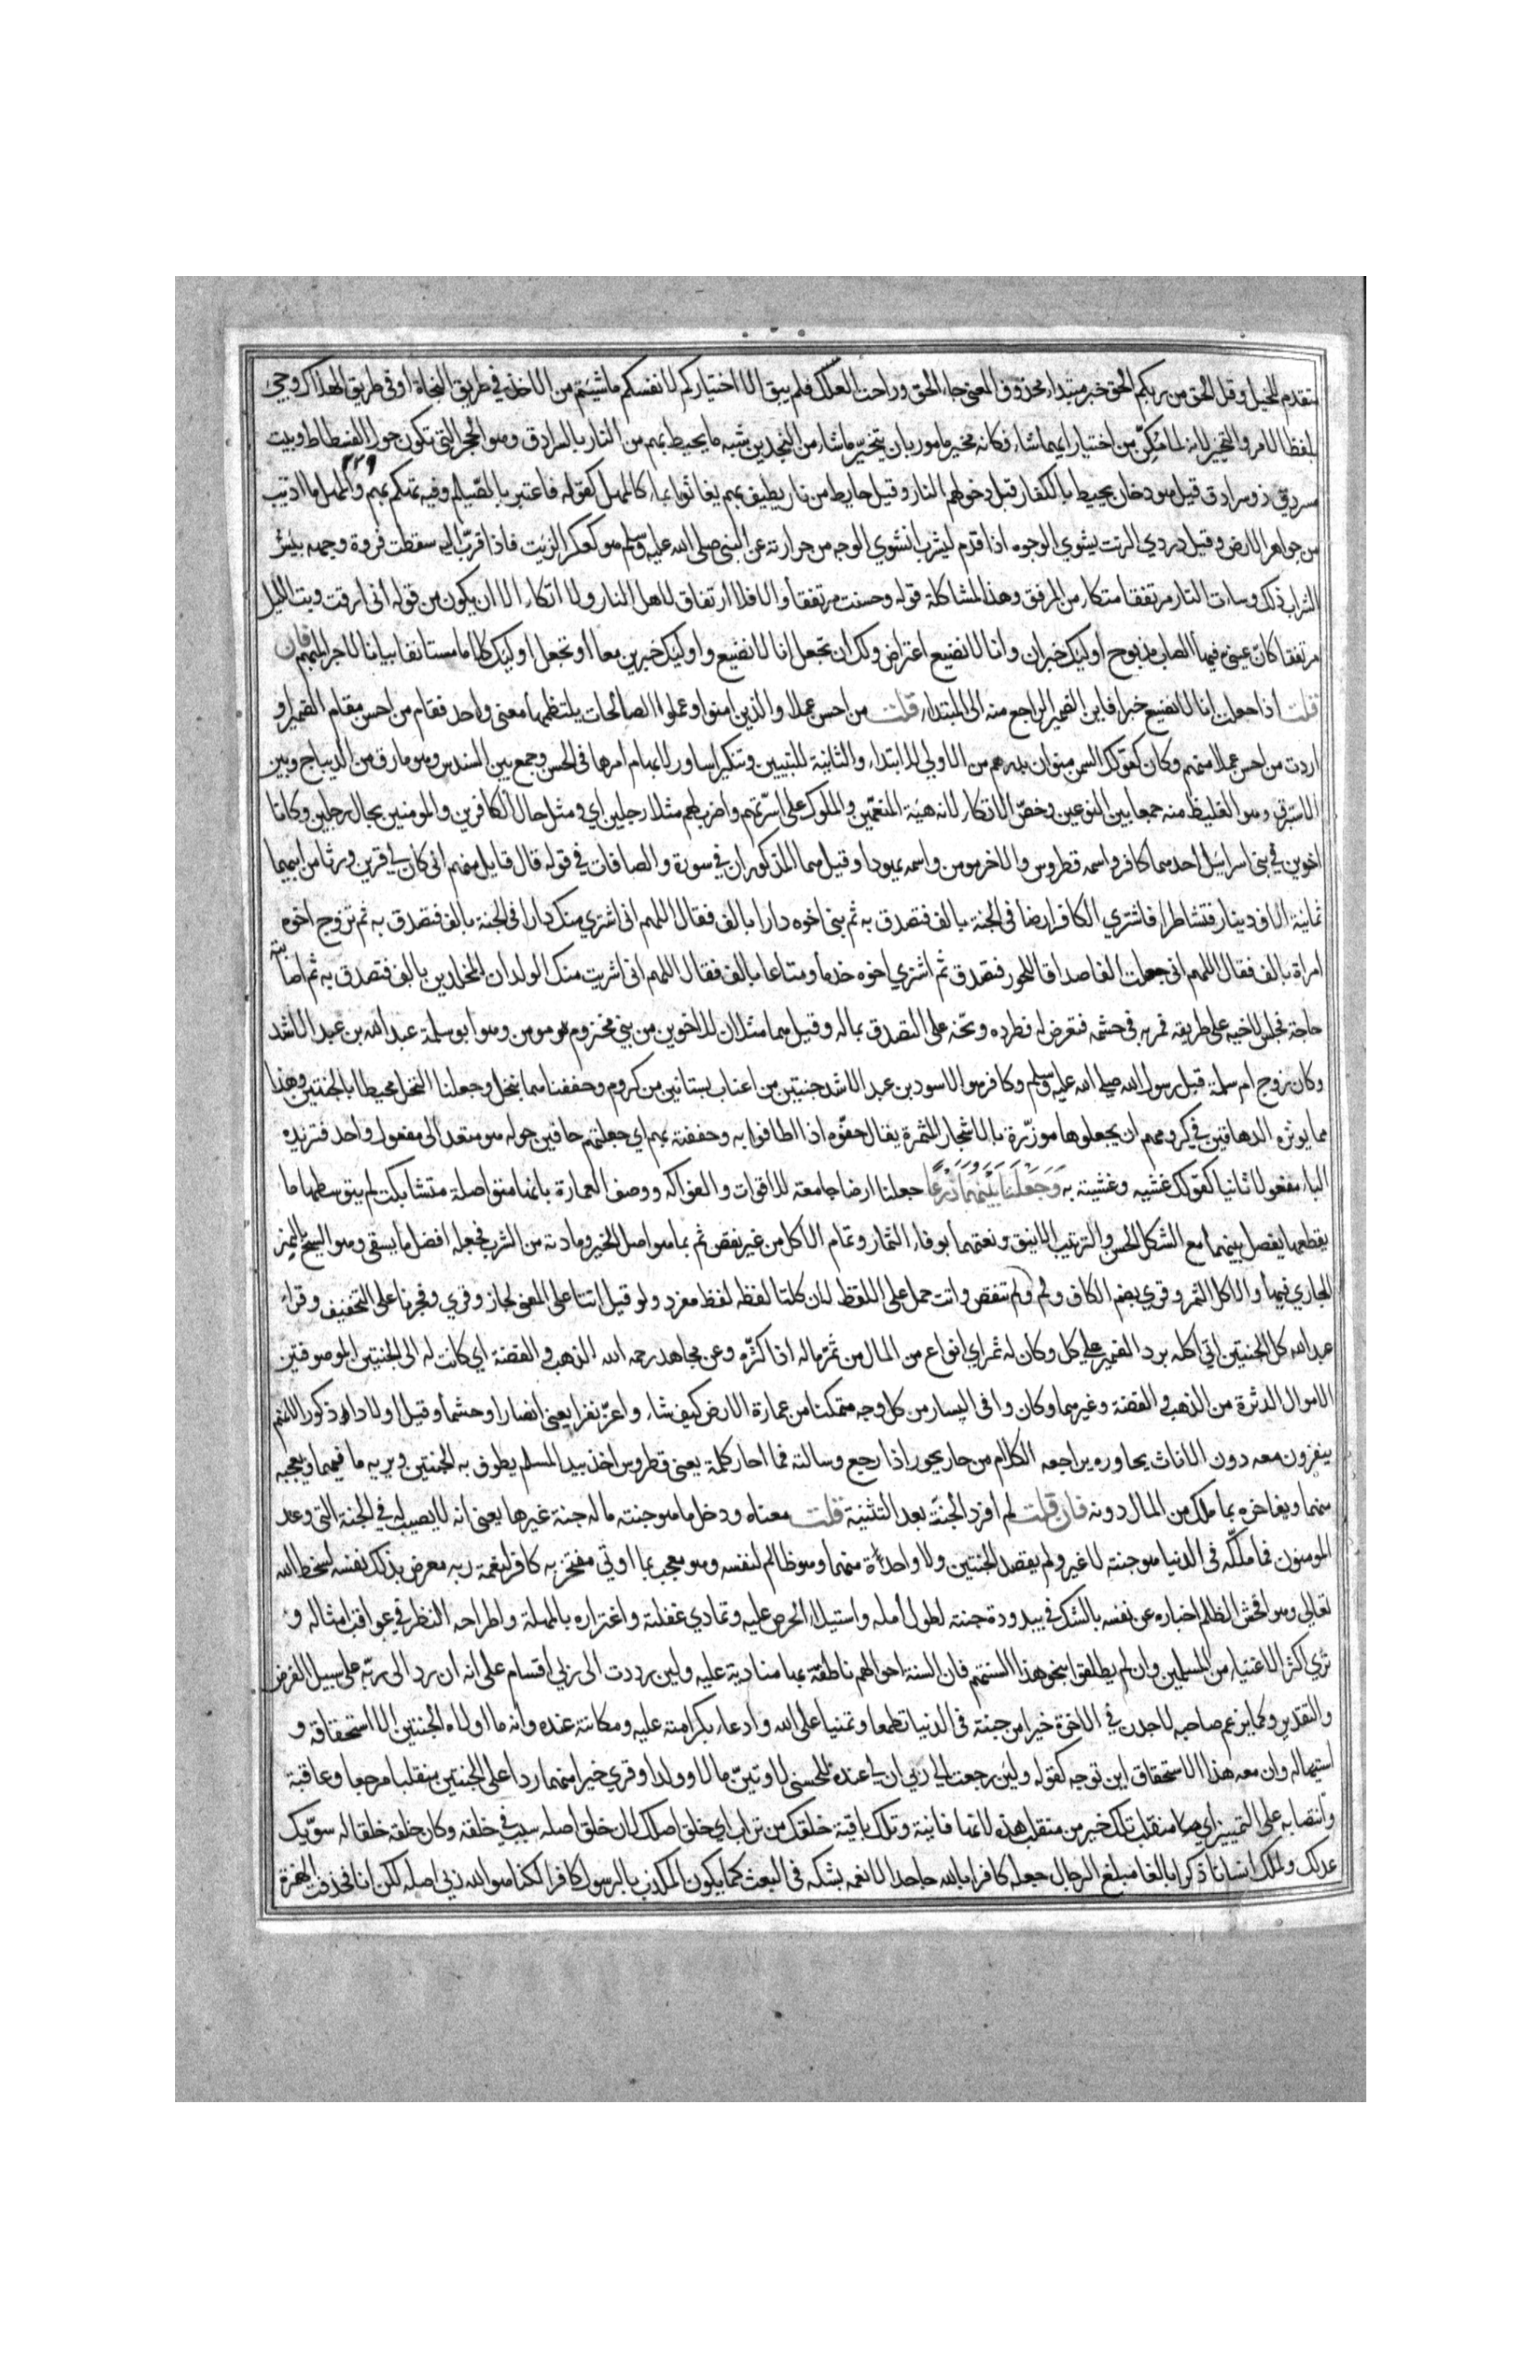 متقدم للخيل وقل الحق من ربكم الحق خبر مبتداء محذوف المعنى جاء الحق وزاحت العلل فلم يبق الا اختياركم لانفسكم ما شئتم من الاخذ في طريق النجاة او في طريق الهلاك وجيء
بلفظ الامر والتخيير لانه لما مكن من اختيار ايهما شاء فكانه مخير مامور بان يتخير ما شاء من النجدين شبه ما يحيط بهم من النار بالسرادق وهو الحجرة التي تكون حول الفسطاط وبيت
٢٢٩
مسردق ذو سرادق قيل هو دخان يحيط بالكفار قبل دخولهم النار وقيل حايط من نار يطيف بهم يغاثوا بماء كالمهل كقوله فاعتبوا بالصيلم وفيه تهكم بهم والمهل ما اذيب
من جواهر الارض وقيل دردي الزيت يشوي الوجوه اذا قدم ليشرب انشوي الوجه من حرارته عن النبي صلى الله عليه وسلم هو كعكر الزيت فاذا قرب اليه سقطت فروة وجهه بئس
الشراب ذلك وساءت النار مرتفقا متكاء من المرفق وهذا لمشاكلة قوله وحسنت مرتفقا والا فلا ارتفاق لاهل النار ولا اتكاء الا ان يكون من قوله اني ارقت وبت الليل
مرتفقا كان عيني فيها الصاب مذبوح اوليك خبر ان وانا لا نضيع اعتراض ولك ان تجعل انا لا نضيع واوليك خبرين معا او تجعل اوليك كلاما مستانفا بيانا للاجر المبهم فان
قلت اذا جعلت انا لا نضيع خبرا فاين الضمير الراجع منه الى المبتداء قلت من احسن عملا والذين امنوا وعملوا الصالحات ينتظمهما معنى واحد فقام من احسن مقام الضمير او
اردت من احسن عملا منهم وكان كقولك السمن منوان بدرهم من الاولى للابتداء والثانية للتبيين وتنكير اساور لابهام امرها في الحسن وجمع بين السندس وهو ما رق من الديباج وبين
الاستبرق وهو الغليظ منه جمعا بين النوعين وخص الاتكاء لانه هيئة المنعمين والملوك على اسرتهم واضرب لهم مثلا رجلين اي ومثل حال الكافرين والمومنين بحال رجلين وكانا
اخوين في بني اسرائيل احدهما كافر واسمه قطروس والاخر مومن واسمه يهودا وقيل هما المذكوران في سورة والصافات في قوله قال قايل منهم اني كان لي قرين ورثا من ابيهما
ثمانية الاف دينار فتشاطرا فاشتري الكافر ارضا في الجنة بالف فتصدق به ثم بنى اخوه دارا بالف فقال اللهم اني اشتري منك دارا في الجنة بالف فتصدق به ثم تزوج اخوه
امراة بالف فقال اللهم اني جعلت الفا صداقا للحور فتصدق ثم اشتري اخوه خدما ومتاعا بالف فقال اللهم اني اشتريت منك الولدان المخلدين بالف فتصدق به ثم اصابته
حاجة فجلس لاخيه على طريقه فمر به في حشمه فتعرض له فطرده وبخه على التصدق بماله وقيل هما مثلان للاخوين من بني مخزوم مومن وهو ابو سلمة عبد الله بن عبد الاشد
وكان زوج ام سلمة قبل رسول الله صلى الله عليه وسلم وكافر هو الاسود بن عبد الاشد جنتين من اعناب بستانين من كروم وحففناهما بنخل وجعلنا النخل محيطا بالجنتين وهذا
مما يوثره الدهاقين في كرومهم ان يجعلوها موزرة بالاشجار المثمرة يقال حفوه اذا اطافوا به وحففته بهم اي جعلتهم حافين حوله هو متعد الى مفعول واحد فتزيده
الباء مفعولا ثانيا كقولك غشيه وغشيته به وَجَعَلْنَا بَيْنَهُمَا زَرْعًا جعلنا ارضا جامعة للاقوات والفواكه ووصف العمارة بانها متواصلة متشابكة لم يتوسطها ما
يقطعها يفصل بينهما مع الشكل الحسن والترتيب الانيق ونعتهما بوفاء الثمار وتمام الاكل من غير نقص ثم بما هو اصل الخير ومادته من الشرب فجعله افضل ما يسقي وهو السيح بالنهر
الجاري فيها والاكل الثمر وقري بضم الكاف ولم تنقص واتت حمل على اللفظ لان كلتا لفظه لفظ مفرد ولو قيل اتتا على المعنى لجاز وقري وفجرنا على التخفيف وقراء
عبد الله كل الجنتين اتي اكله برد الضمير على كل وكان له ثمر اي انواع من المال من ثمر ماله اذا كثره وعن مجاهد رحمه الله الذهب والفضة اي كانت له الى الجنتين الموصوفتين
الاموال الدثرة من الذهب والفضة وغيرهما وكان وافي اليسار من كل وجه متمكنا من عمارة الارض كيف شاء واعز نفرا يعني انصارا وحشما وقيل اولادا ذكورا لانهم
ينفرون معه دون الاناث يحاوره يراجعه الكلام من حار يحور اذا رجع وسالته فما احار كلمة يعني قطروس اخذ بيد المسلم يطوف به الجنتين ويريه ما فيهما ويعجبه
منهما ويفاخره بما ملك من المال دونه فان قلت لم افرد الجنة بعد التثنية قلت معناه ودخل ما هو جنته ماله جنة غيرها يعني انه لا نصيب له في الجنة التي وعد
المومنون فما ملكه في الدنيا هو جنته لا غير ولم يقصد الجنتين ولا واحدة منهما وهو ظالم لنفسه وهو معجب بما اوتي مفتخر به كافر لنعمة ربه معرض بذلك نفسه لسخط الله
تعالى وهو افحش الظلم اخباره عن نفسه بالشك في بيدودة جنته لطول امله واستيلاء الحرص عليه وتمادي غفلته واغتراره بالمهلة واطراحه النظر في عواقب امثاله و
تري اكثر الاغنياء من المسلمين وان لم يطلقوا بنحو هذا السنتهم فان السنة احوالهم ناطقة بها منادية عليه ولين رددت الى ربي اقسام على انه ان رد الى ربه على سبيل الفرض
والتقدير وكما يزعم صاحبه لاجدن في الاخرة خيرا من جنته في الدنيا تطمعا وتمنيا على الله وادعاء بكرامته عليه ومكانته عنده وانه ما اولاه الجنتين الا استحقاقه و
استيهاله وان معه هذا الاستحقاق اين توجه كقوله ولئن رجعت الى ربي ان لي عنده للحسنى لاوتين مالا وولدا وقري خيرا منهما ردا على الجنتين منقلبا مرجعا وعاقبة
وانتصابه على التمييز اي منقلب تلك خير من منقلب هذه لانها فانية وتلك باقية خلقك من تراب اي خلق اصلك لان خلق اصله سبب في خلقه وكان خلقه خلقا له سويك
عدلك وكملك انسانا ذكرا بالغا مبلغ الرجال جعله كافرا بالله جاحدا لانعمه بشكه في البعث كما يكون المكذب بالرسول كافرا لكنا هو الله ربي اصله لكن انا فحذفت الهمزة